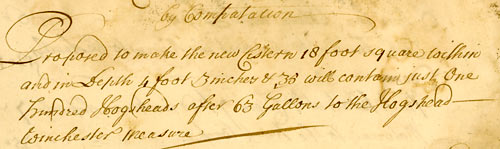 by Computation
Proposed to make the new Cestern 18 foot square within
and in Depth 4 foot 3 inches & 38 will contain just One
hundred Hogsheads after 63 Gallons to the Hogshead
Winchester measure